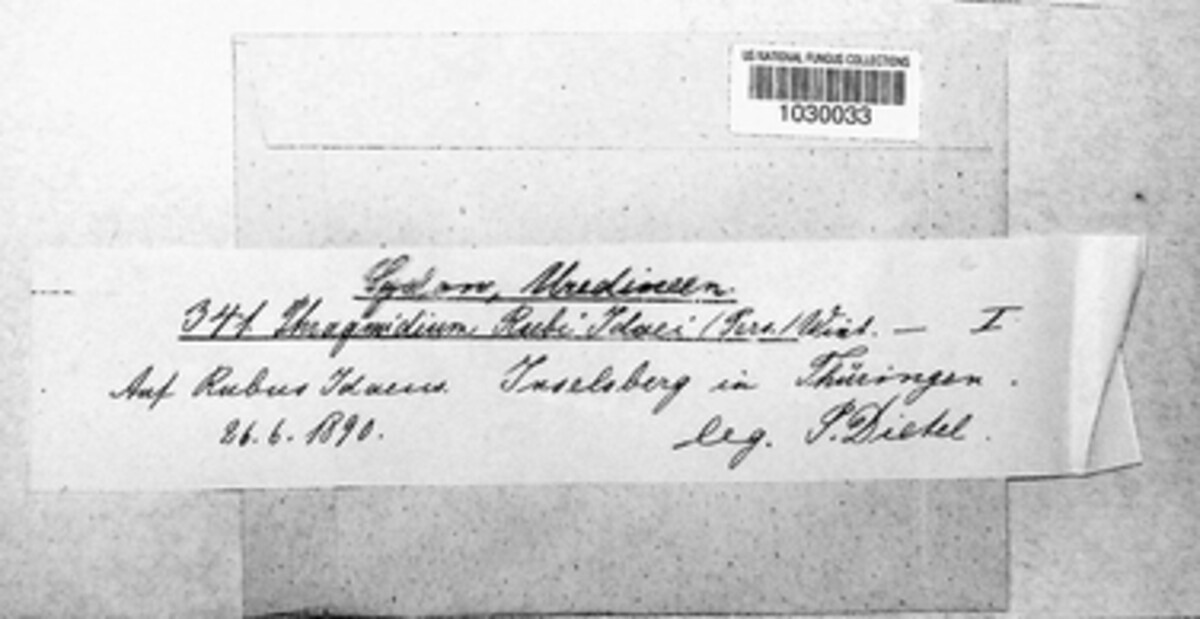 US NATIONAL FUNGUS COLLECTIONS
1030033
Sydow, Uredineen
341. Phragmidium Rubi Idaei (Pers.) Wint. — I
Auf Rubus Idaeus. Inselsberg in Thüringen.
26.6.1890. leg. P. Dietel.